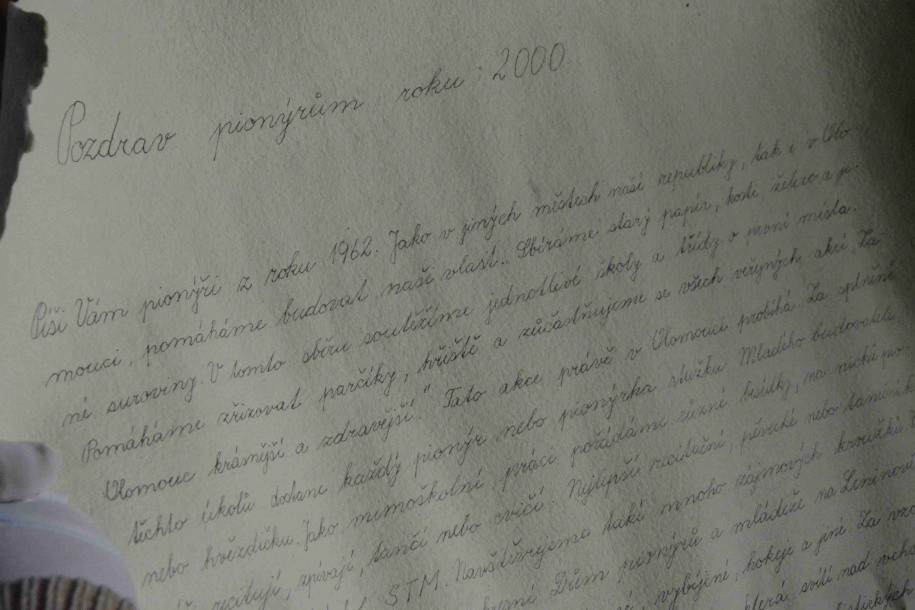 Pozdrav pionýrům roku 2000
Píší Vám pionýři z roku 1962. Jako v jiných městech naší republiky, tak i v Olo-
mouci, pomáháme budovat naši vlast. Sbíráme starý papír, kosti, železo a ji-
né suroviny. V tomto sběru soutěžíme jednotlivé školy a třídy o první místa.
Pomáháme zřizovat parčíky, hřiště a zúčastňujeme se všech veřejných akcí „Za
Olomouc krásnější a zdravější." Tato akce právě v Olomouci probíhá. Za splnění
těchto úkolů dostane každý pionýr nebo pionýrka stužku Mladého budovatele
nebo hvězdičku. Jako mimoškolní práce pořádáme různé besídky, na nichž pio-
recitují, zpívají, tančí nebo cvičí. Nejlepší recitační, pěvecké nebo taneční
STM. Navštěvujeme také mnoho zájmových kroužků
Dům pionýrů a mládeže na Leninově
vybíjené, hokeje a jiné. Za vzo
která svítí nad